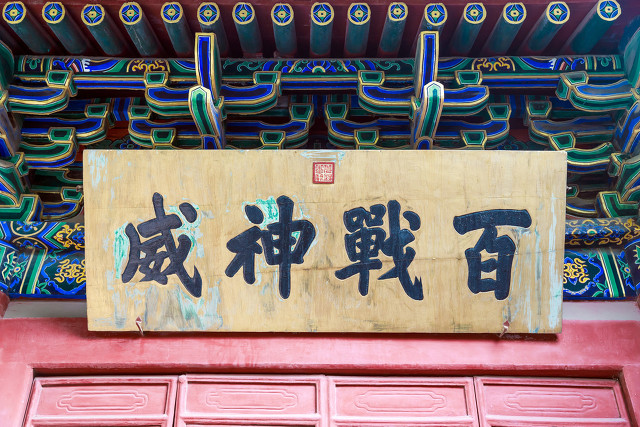 百戰神威